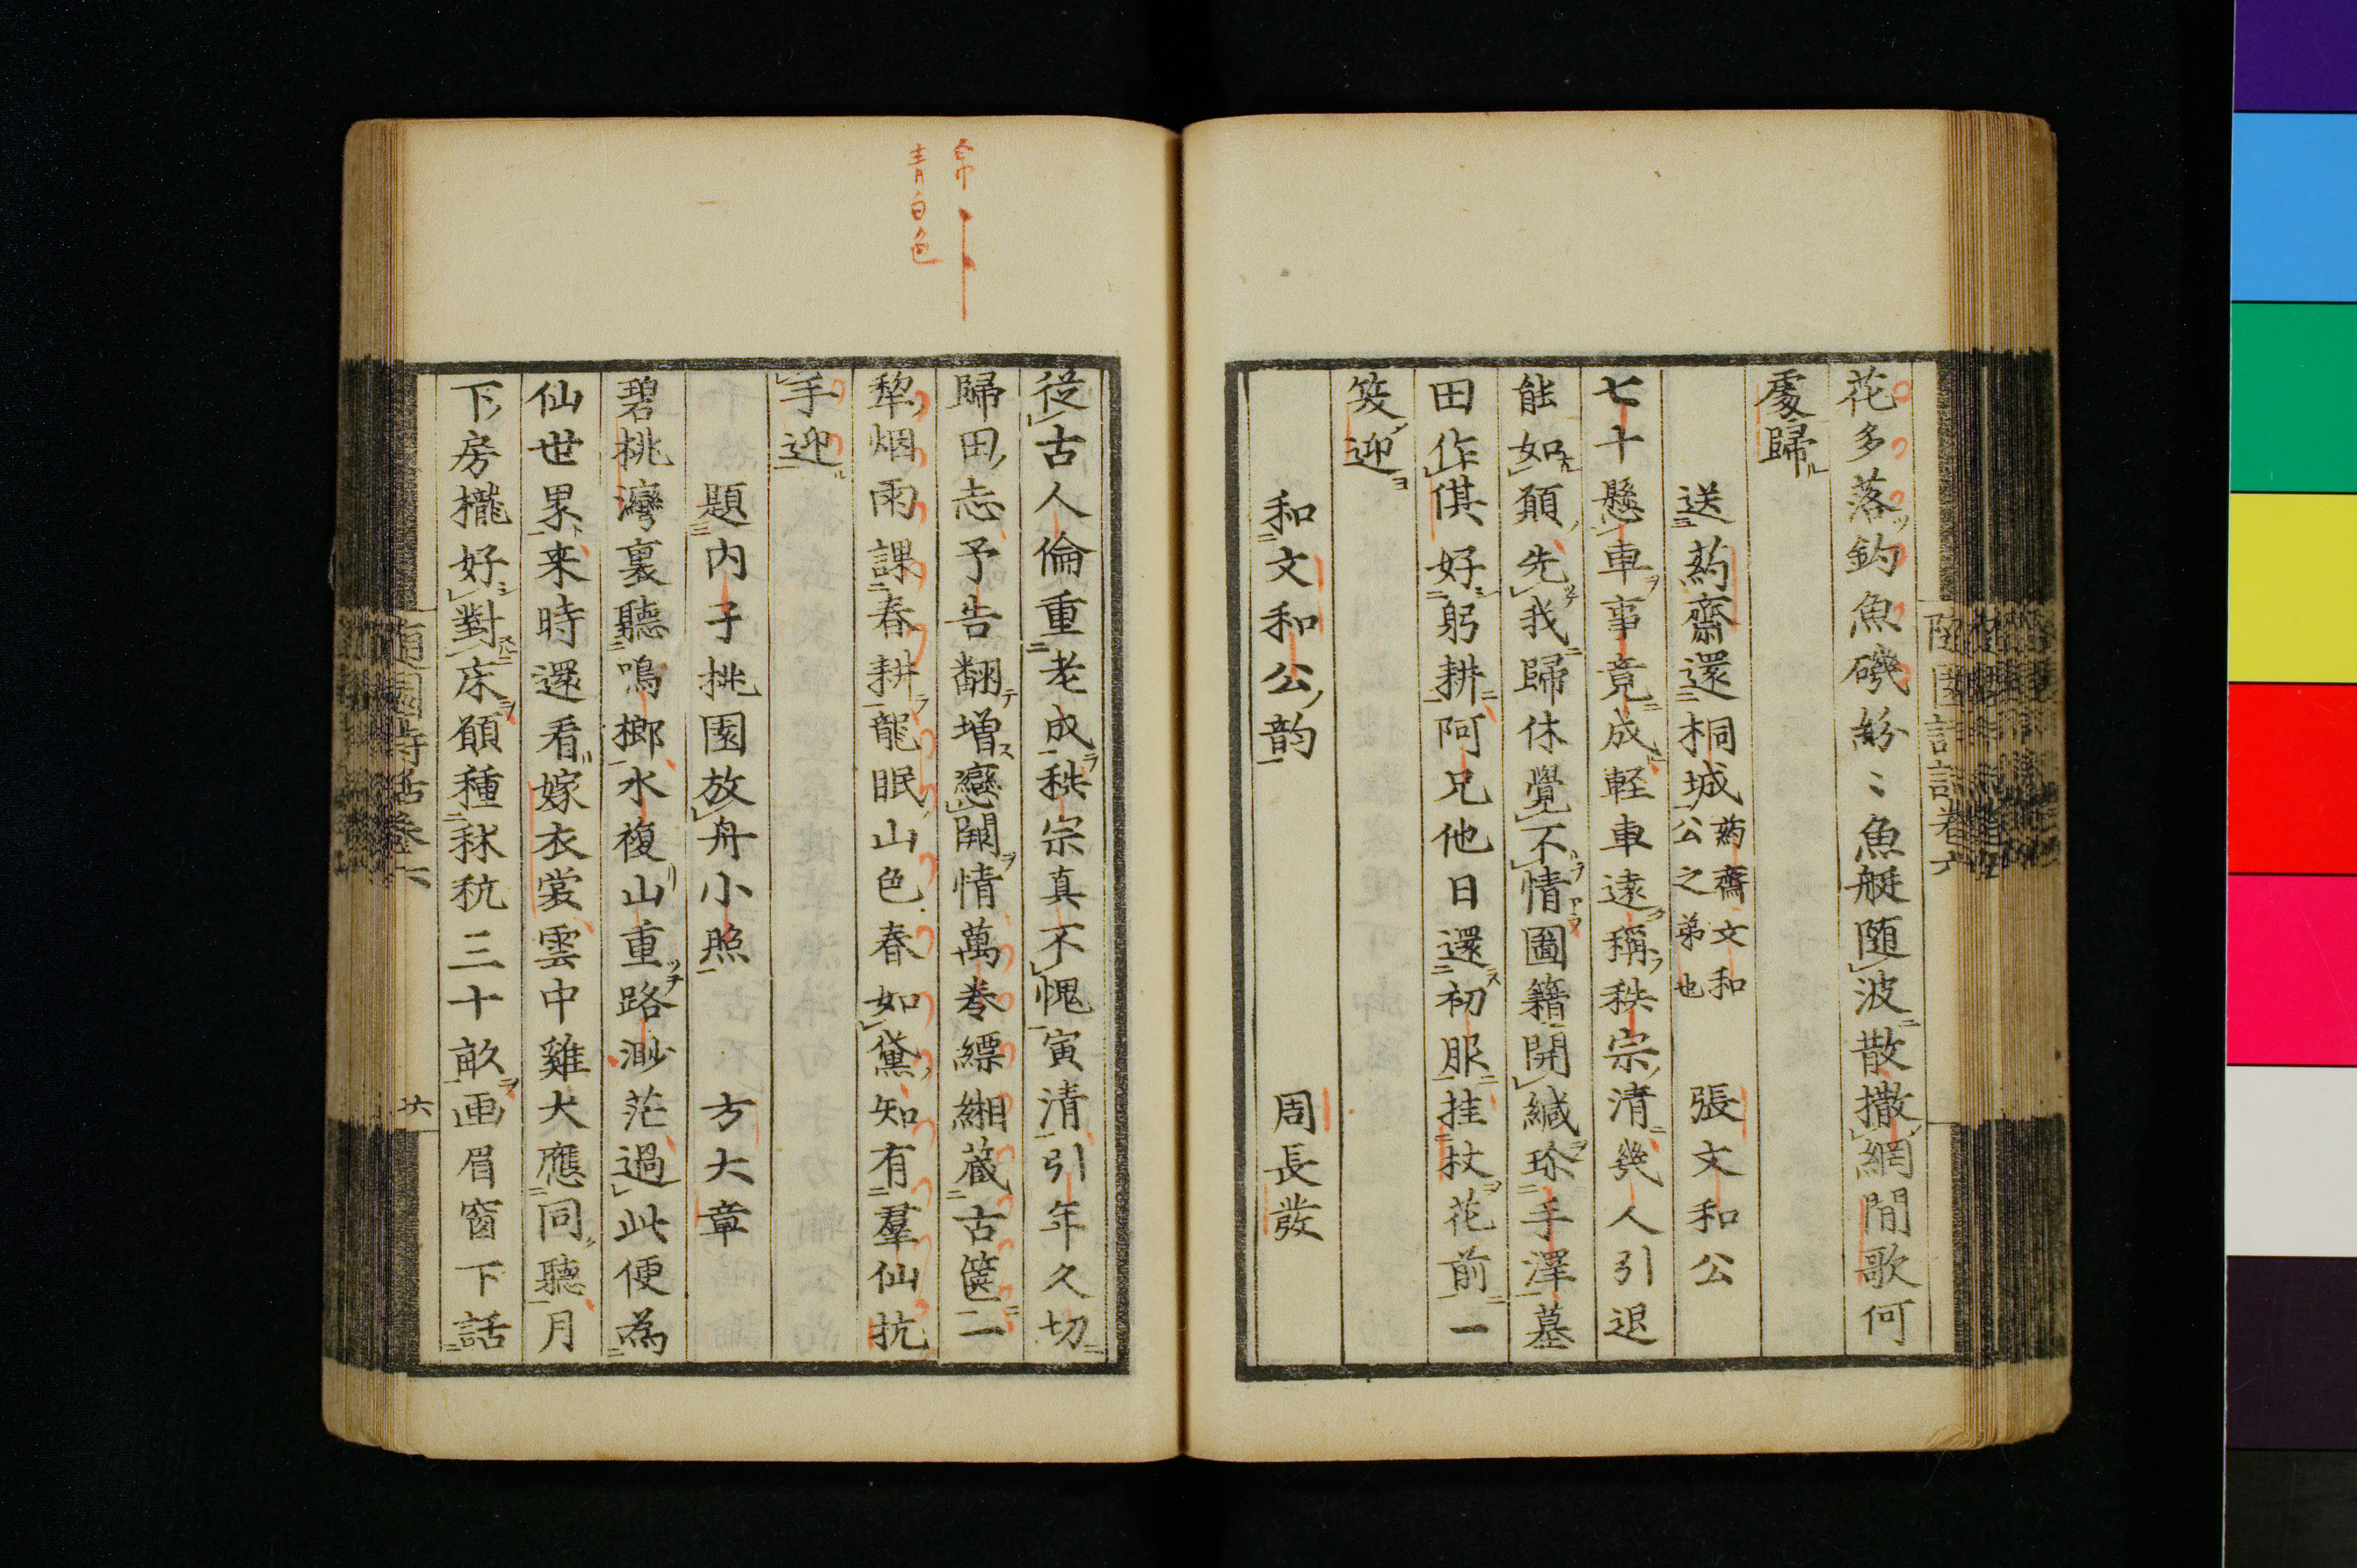 花多落釣魚磯紛〻魚艇随波散撒網閒歌何
處歸
送葯齋還桐城葯齋文和公之弟也 張文和公
七十懸車事竟成軽車遠稱秩宗清幾人引退
能如願先我歸休覺不情圖籍開緘珎手澤墓
田作倛好躬耕阿兄他日還初服挂杖花前一
笑迎
和文和公韵 周長發
從古人倫重老成秩宗真不愧寅清引年久切
歸田志予告翻增戀闕情萬巻縹緗蔵古篋一
犂烟雨課春耕龍眠山色春如黛知有羣仙抗
手迎
題内子桃園放舟小照 方大章
碧桃灣裏聽鳴榔水複山重路渺茫過此便為
仙世界来時還看嫁衣裳雲中雞犬應同聽月
下房櫳好對床願種秫秔三十畝画眉窗下話
隨園詩話巻六
六
帛
青白色